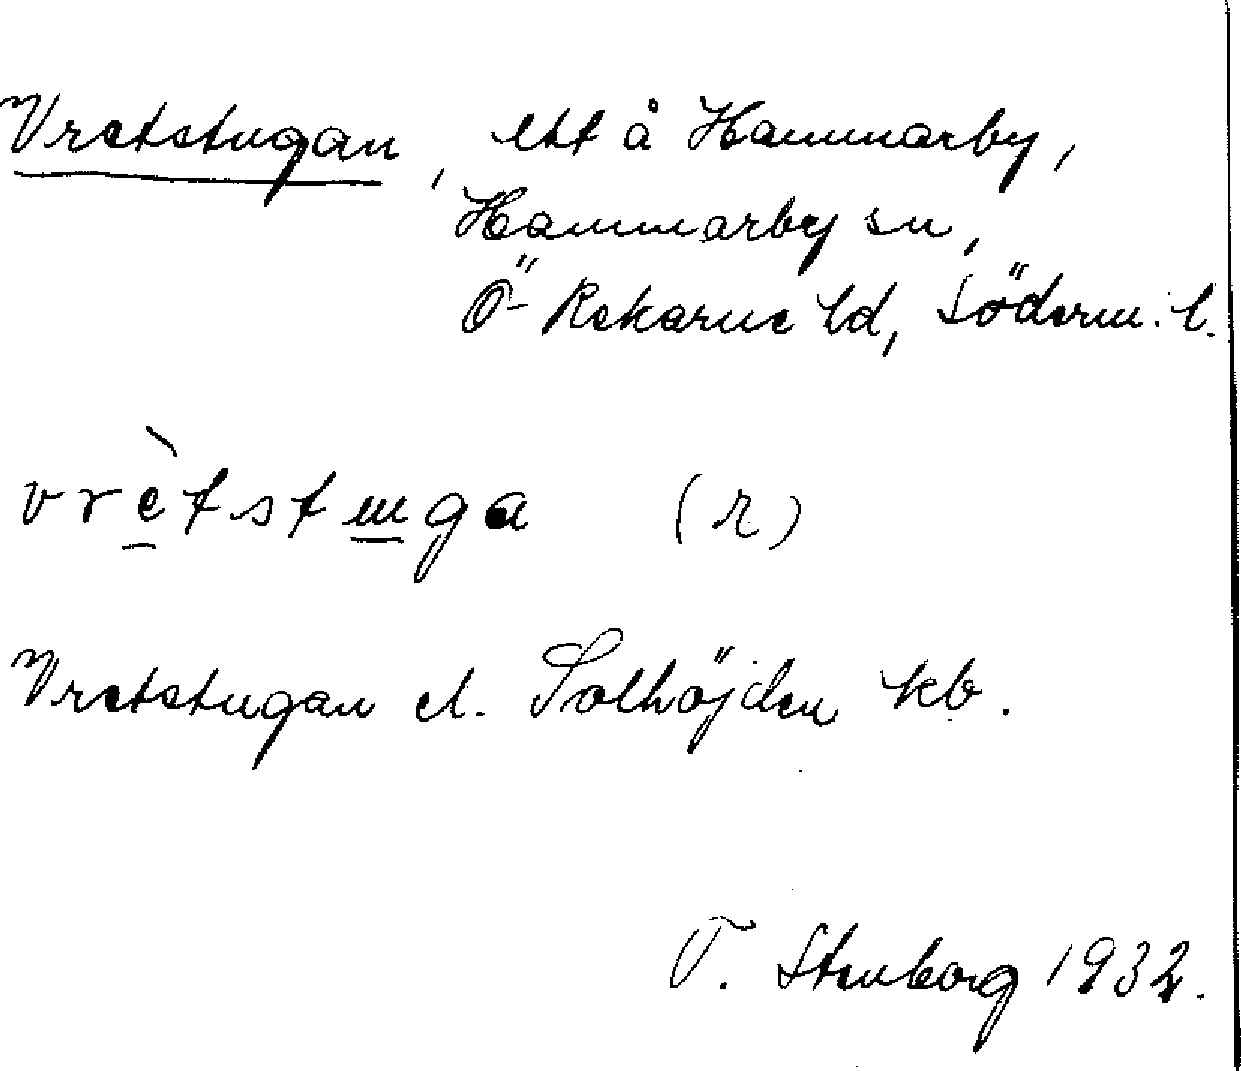 Vretstugan, lht å Hammarby,
Hammarby sn,
Ö- Rekarne hd, Söderm. l.
vrètstuga (r)
Vretstugan el. Solhöjden kb.
T. Stenborg 1932.